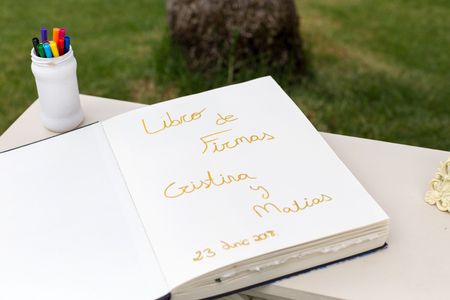 Libro de
Firmas
Cristina
y
Matias
23 Junio 2018.